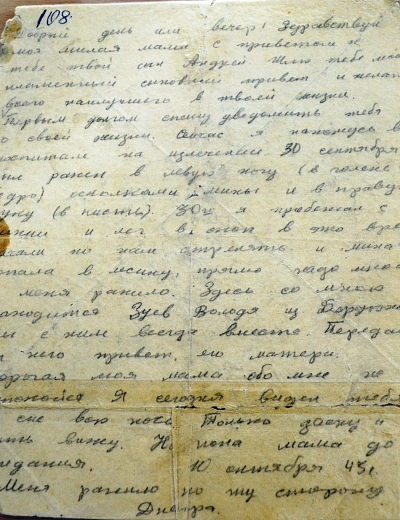 108.
Добрый день или вечер! Здравствуй
моя милая мама с приветом к
тебе твой сын Андрей Шлю тебе мой
пламенный сыновий привет и желаю
всего наилучшего в твоей жизни.
Первым долгом спешу уведомить тебя
о своей жизни. Сейчас я нахожусь в
госпитале на излечении 30 сентября
был ранен в левую ногу (в голень
бедро) осколками мины и в правую
руку (в кисть). 30го я пробежал с
и лег в окоп в это время
начали по нам стрелять и мина
попала в лесину, прямо надо мной
и меня ранило. Здесь со мною
находится Зуев Володя из
мы с ним всегда вместе. Передай
от него привет, его матери.
Дорогая моя мама обо мне не
беспокойся Я сегодня видел тебя
во сне всю ночь. Только засну и
опять вижу. Ну пока мама до
свидания. 10 октября 43г.
Меня ранило по ту сторону
Днепра.